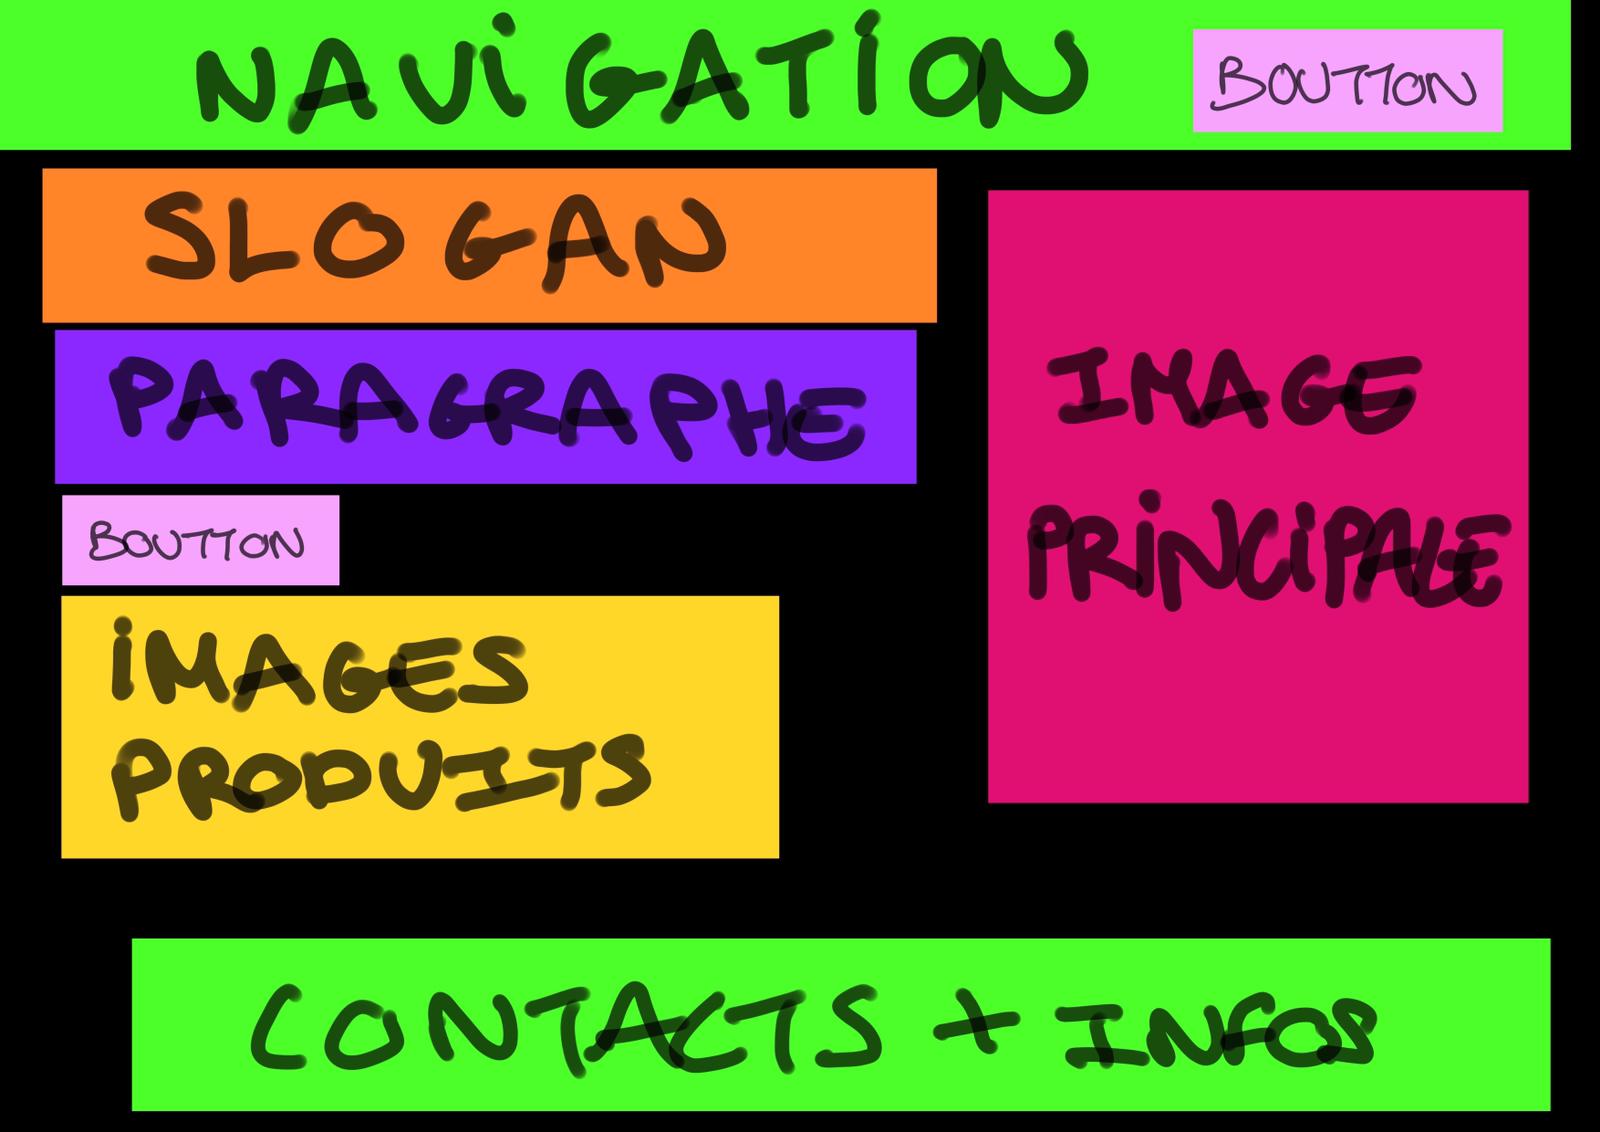 NAVIGATION
BOUTTON
SLOGAN
PARAGRAPHE
BOUTTON
IMAGES
PRODUITS
IMAGE
PRINCIPALE
CONTACTS + INFOS